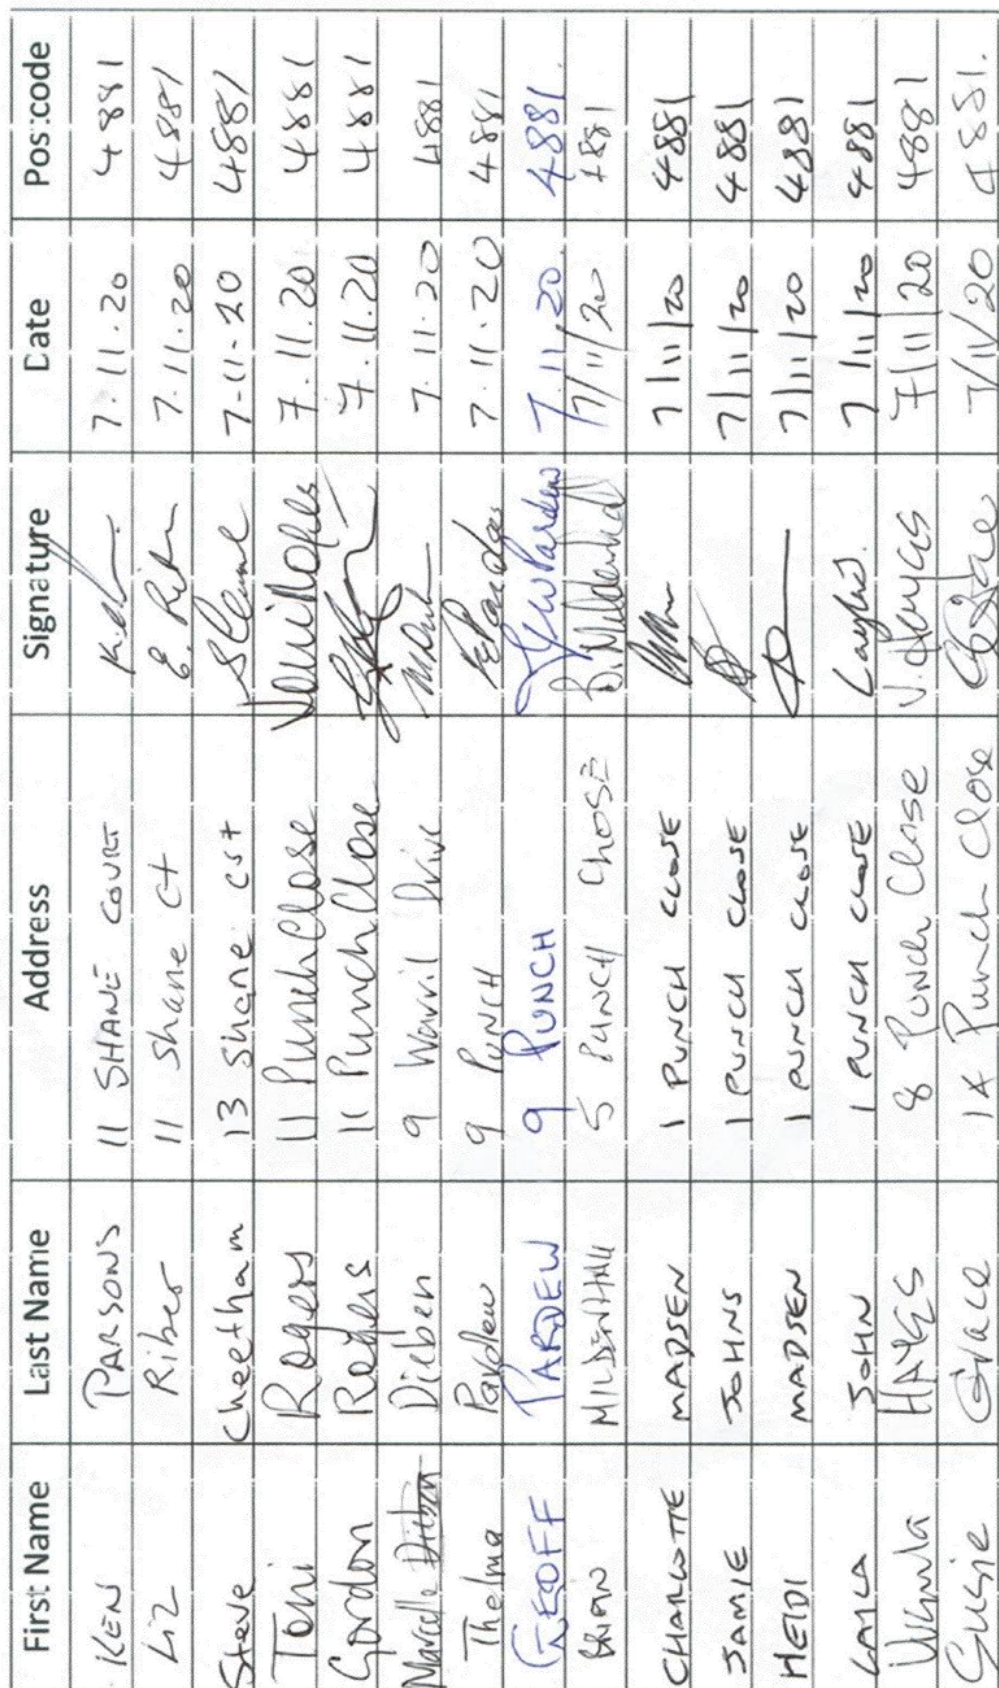 First Name Last Name Address Signature Date Postcode
KEN PARSONS 11 SHANE COURT 7.11.20 4881
Liz Riber 11 Shane Ct 7.11.20 4881
Steve Cheetham 13 Shane Crt 7-11-20 4881
Toni Rogers 11 Punch Close 7.11.20 4881
Gordon Rogers 11 Punch Close 7.11.20 4881
Marcelle Dieben 9 Warril Drive 7.11.20 4881
Thelma Pardew 9 PUNCH 7.11.20 4881
GEOFF PARDEW 9 PUNCH 7.11.20. 4881.
BRIAN MILDENHALL 5 PUNCH CLOSE 7/11/20 4881
CHARLOTTE MADSEN 1 PUNCH CLOSE 7/11/20 4881
JAMIE JOHNS 1 PUNCH CLOSE 7/11/20 4881
HEIDI MADSEN 1 PUNCH CLOSE 7/11/20 4881
LAYLA JOHN 1 PUNCH CLOSE Layla 7/11/20 4881
HAYES 8 PUNCH Close 7/11/20 4881
Susie Grace 1A Punch Close 7/11/20 4881.